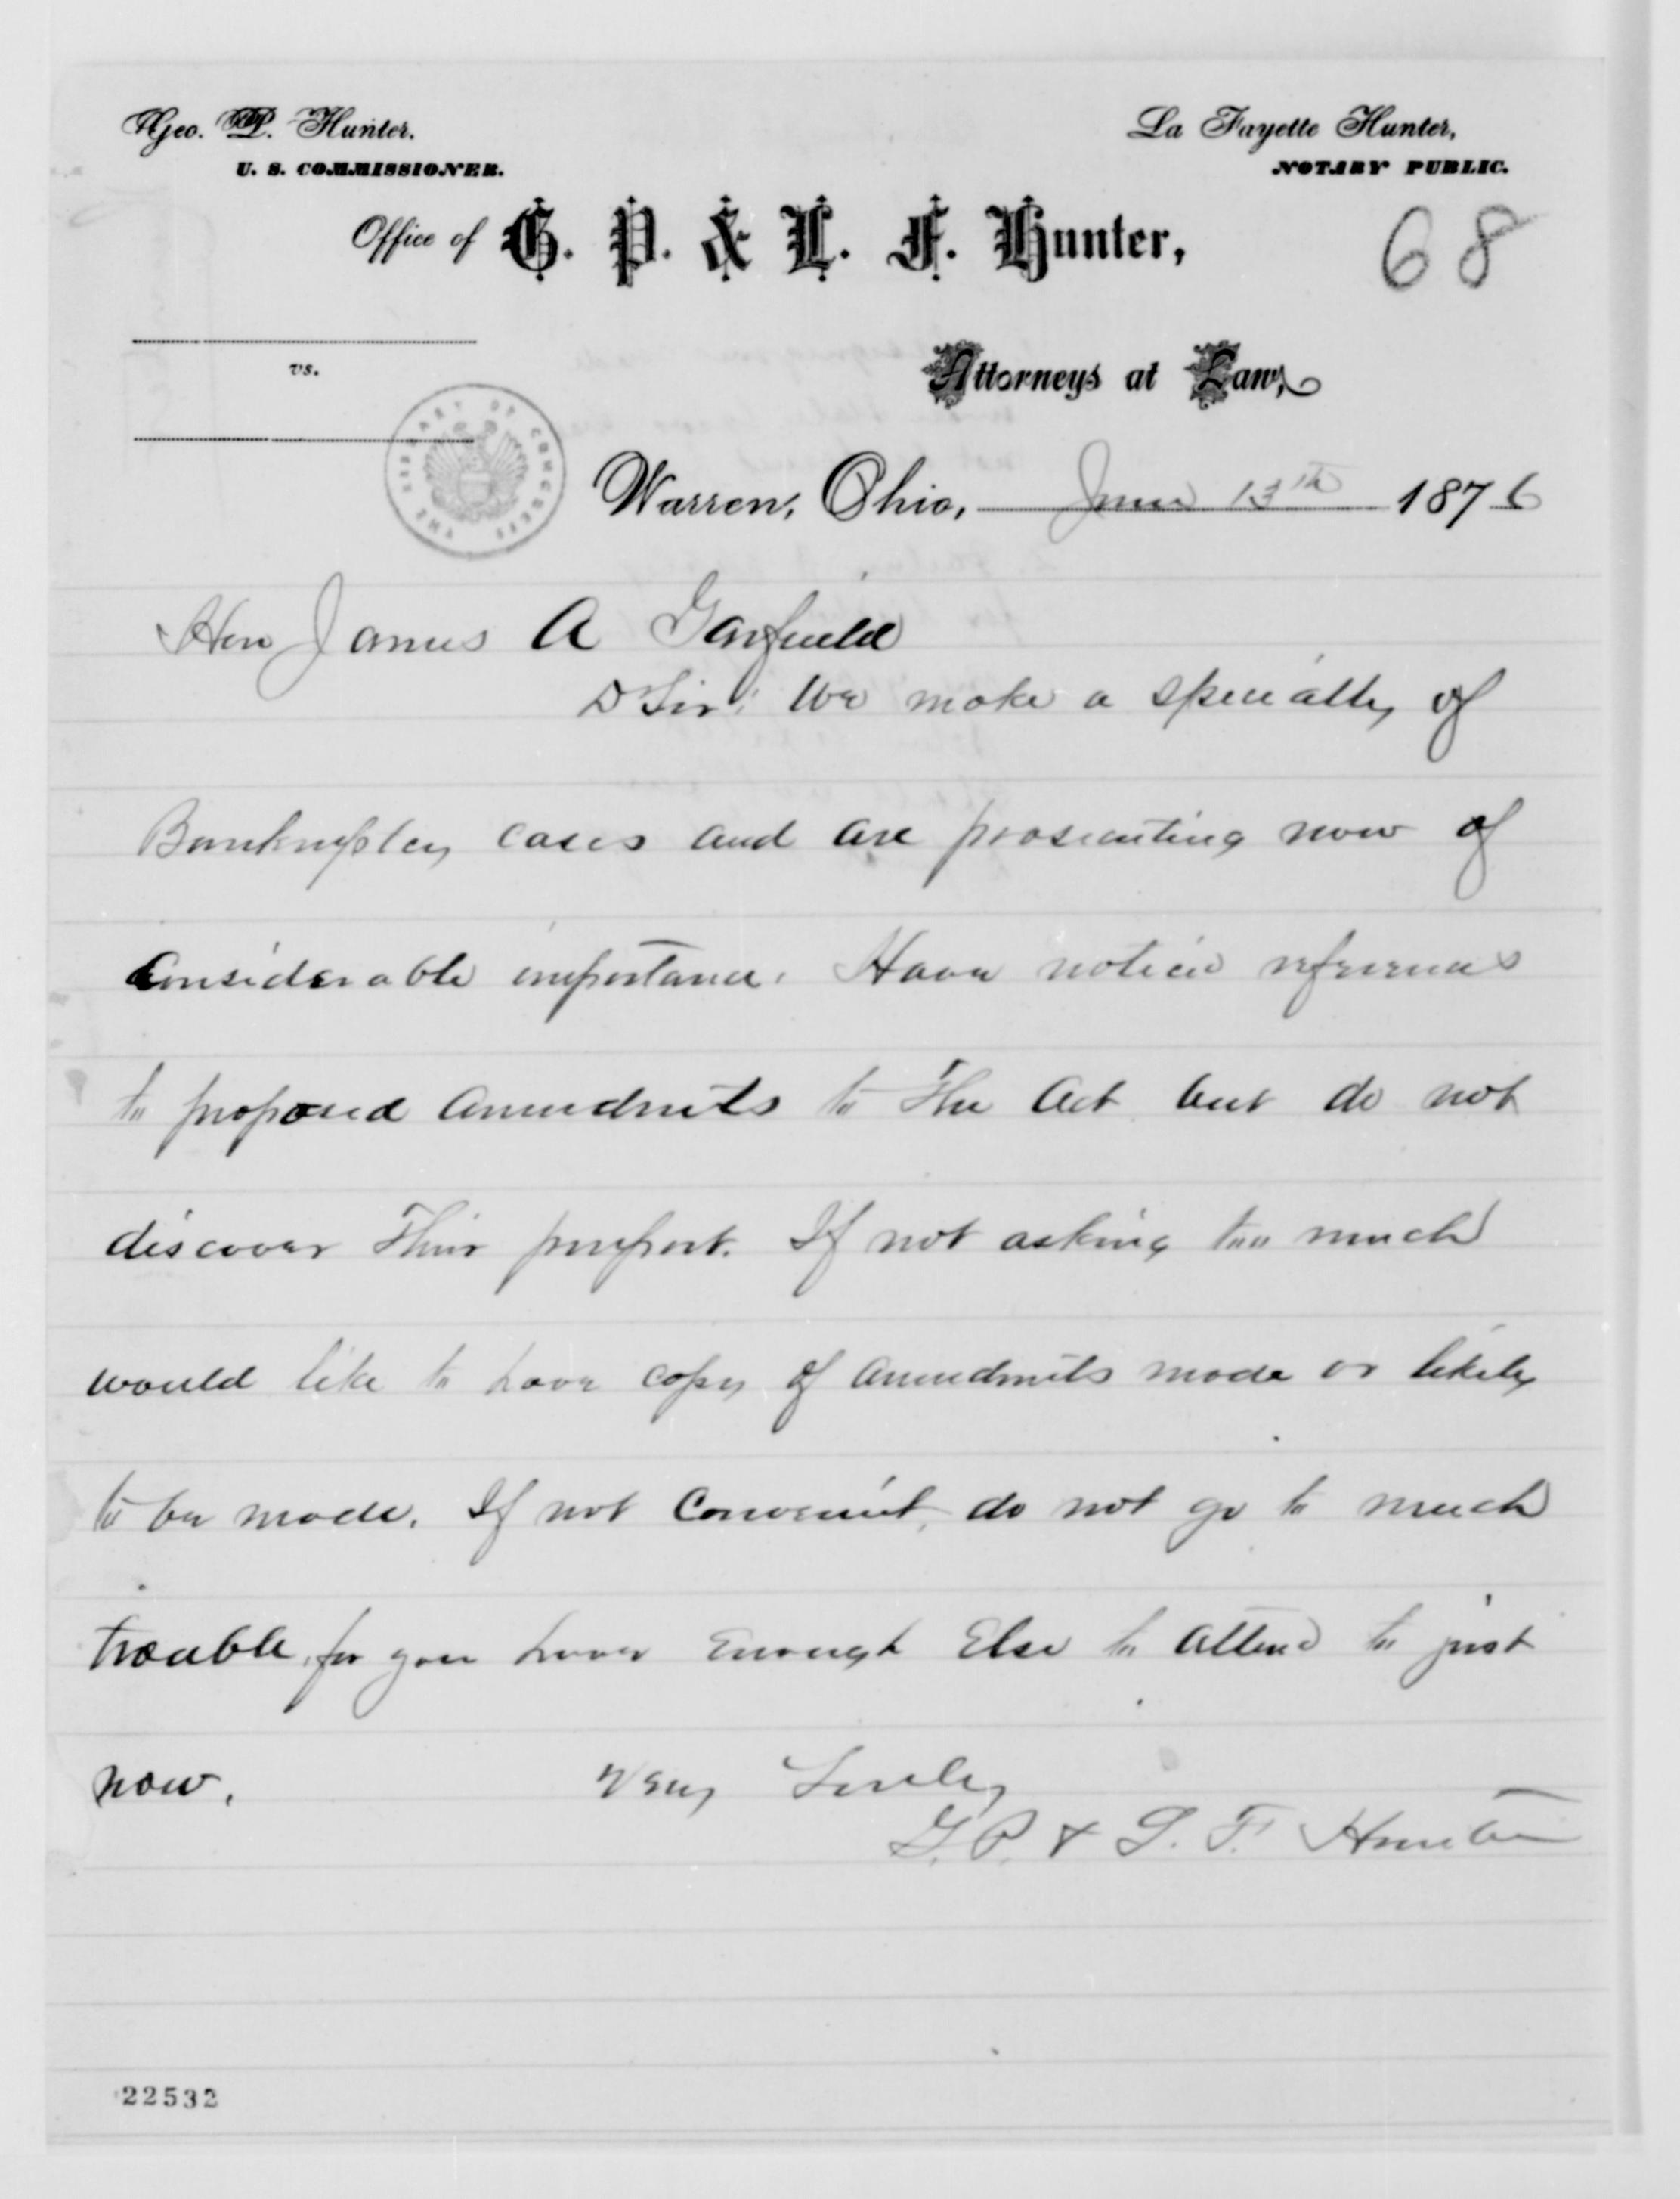 Geo. P. Hunter.
U. S. COMMISSIONER.
La Fayette Hunter,
NOTARY PUBLIC.
Office of G. P. & L. F. Hunter,
68
vs.
Attorneys at Law,
THE LIBRARY OF CONGRESS
Warren, Ohio, June 13th 1876
Hon James A Garfield
D Sir: We make a specialty of
Bankruptcy cases and are prosecuting now of
Considerable importance. Have notice references
to proposed Amendmts to the Act but do not
discover their purport. If not asking too much
would like to have copy of Amendmts made or likely
to be made. If not Convenient, do not go to much
trouble, for you have Enough Else to attend to just
now. Very Truly
G. P. & L. F. Hunter
22532